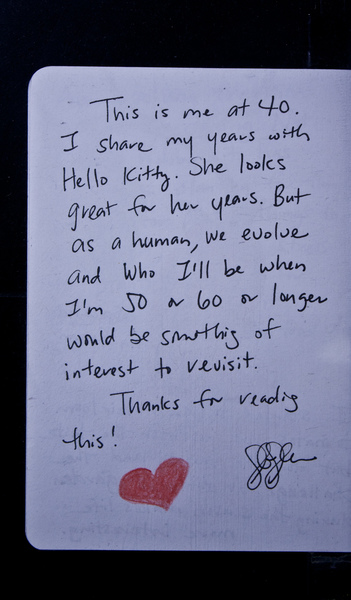 This is me at 40.
I share my years with
Hello Kitty. She looks
great for her years. But
as a human, we evolve
and who I'll be when
I'm 50 or 60 or longer
would be somthig of
interest to revisit.
Thanks for readig
this!